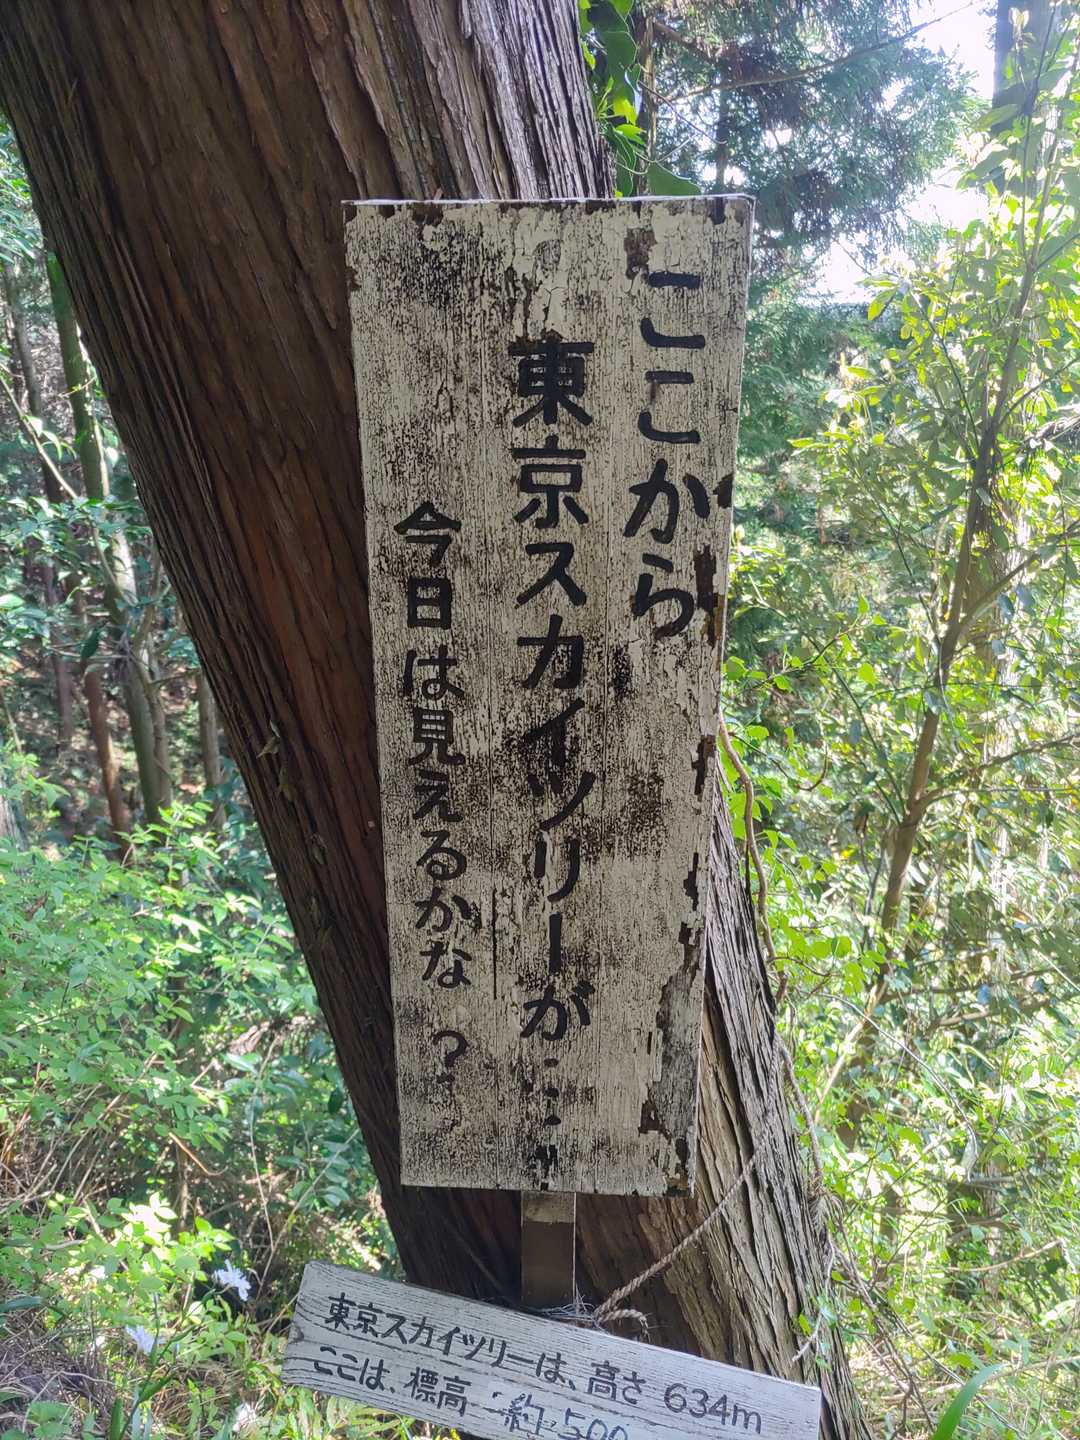 ここから
東京スカイツリーが……
今日は見えるかな？
東京スカイツリーは、高さ 634m
ここは、標高 約500